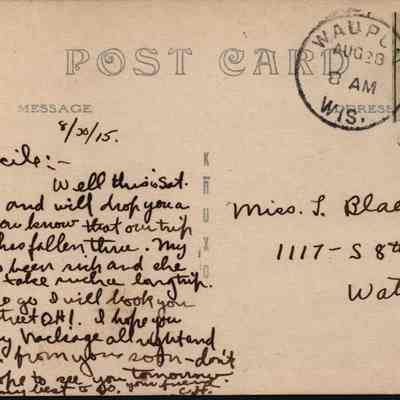 POST CARD
WAUPU
AUG 28
8 AM
WIS.
MESSAGE
ADDRESS
8/30/15.
cile:-
Well this is Sat.
and will drop you a
ow know that our trip
has fallen thru. My
been sick and she
take such a long trip.
go I will look you
treet OH!. I hope you
package all right and
from you soon - don't
ope to see you tomorrow.
my best to Do. your friend
C.H.
KRUXO
Miss. T. Blae
1117 - S 8th
Wat